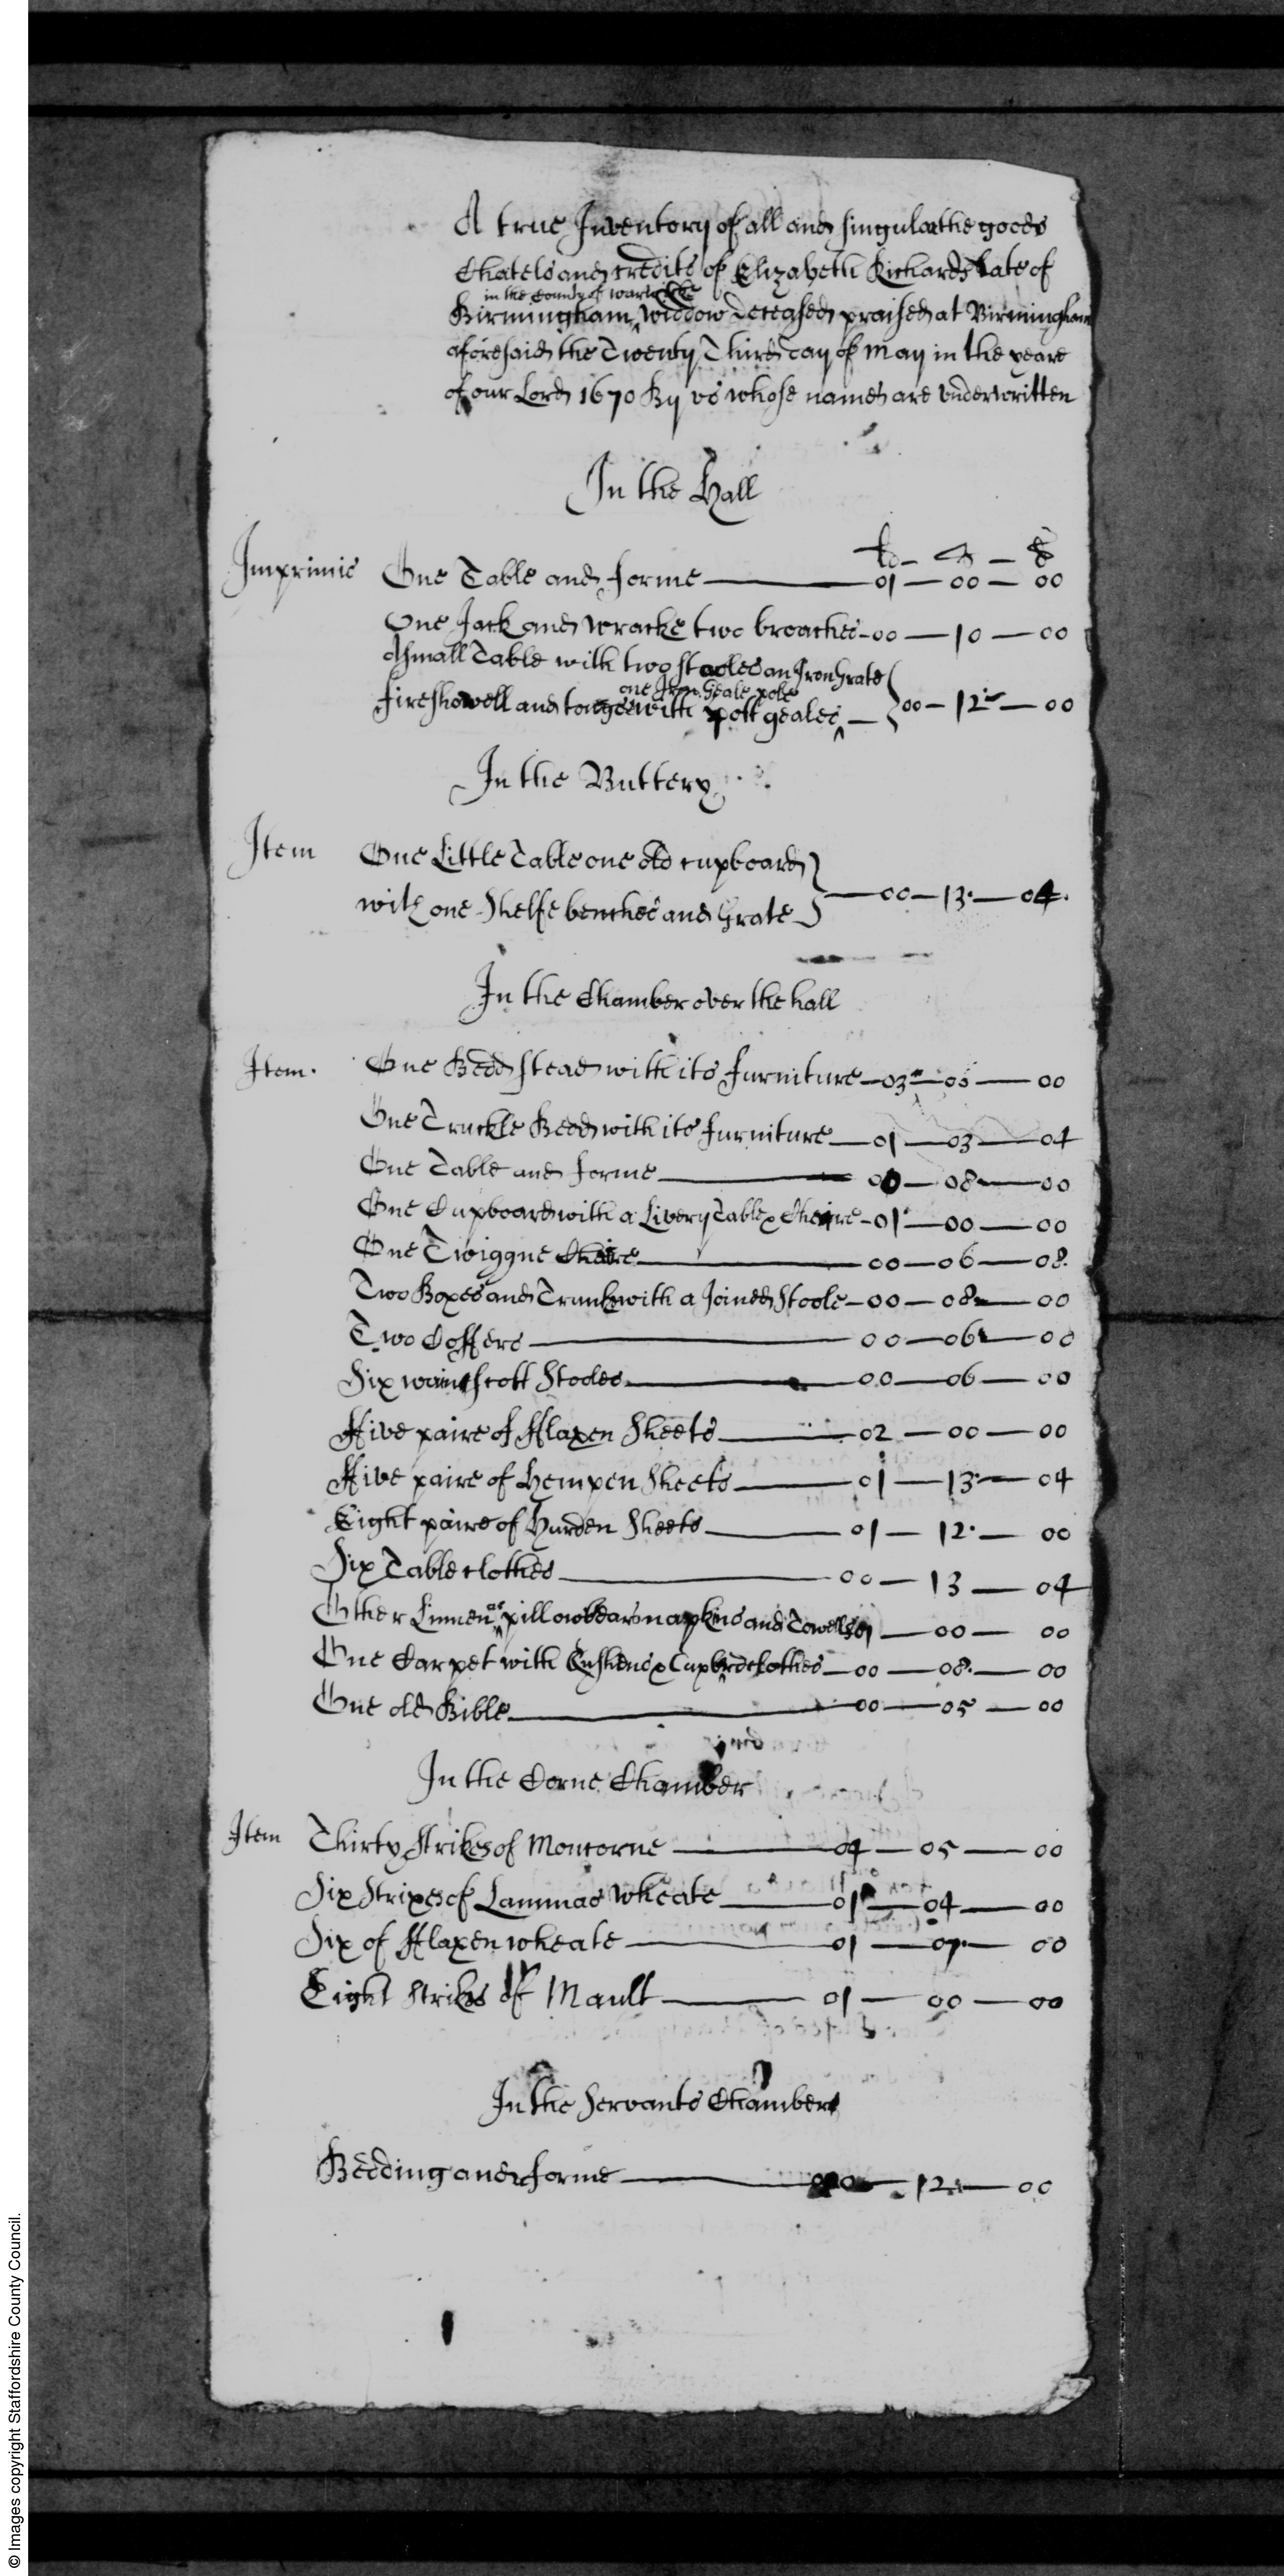 A true Inventory of all and singular the goods
Chatels and credits of Elizabeth Rickards late of
in the County of warwicke
Birmingham ^ widdow deceased praised at Birmingham
aforesaid the Twenty Third day of May in the yeare
of our Lord 1670 By us whose names are underwritten
In the Hall
li — s — d
Imprimis One Table and forme — 01 — 00 — 00
One Jack and wracke two broaches - 00 — 10 — 00
A small Table with two stooles an Iron Grate
one Iron Geale pole
fireshowell and tonges with pott geales ^ — } 00 — 12 — 00
In the Buttery
Item One Little Table one old cupboard
with one Shelfe benches and Grate } — 00 — 13 — 04
In the Chamber over the hall
Item. One Bedd stead with its furniture — 03 — 05 — 00
One Truckle Bedd with its furniture — 01 — 03 — 04
One Table and forme — 00 — 08 — 00
One Cupboard with a Livery Table & Cheaire - 01 — 00 — 00
One Twiggne Chaire — 00 — 06 — 08
Two Boxes and Trunke with a Joined Stoole — 00 — 08 — 00
Two Coffers — 00 — 06 — 00
Six wainscott Stooles — 00 — 06 — 00
ffive paire of fflaxen Sheets — 02 — 00 — 00
ffive paire of Hempen Sheets — 01 — 13 — 04
Eight paire of Hurden Sheets — 01 — 12 — 00
Six Table clothes — 00 — 13 — 04
Other Linnen ^ as pillowbears napkins and Towells 01 — 00 — 00
One Carpet with Cushens & Cupbrdclothes — 00 — 08 — 00
One old Bible — 00 — 05 — 00
In the Corne Chamber
Item Thirty Strikes of Moncorne — 04 — 05 — 00
Six Strikes of Lammas wheate — 01 — 04 — 00
Six of fflaxen wheate — 01 — 07 — 00
Eight Strikes of Mault — 01 — 00 — 00
In the Servants Chambers
Bedding and forme — 00 — 12 — 00
© Images copyright Staffordshire County Council.